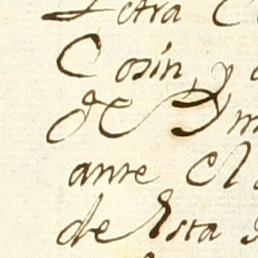 Letra C
Cosin, y
de Ym
ante el
de esta